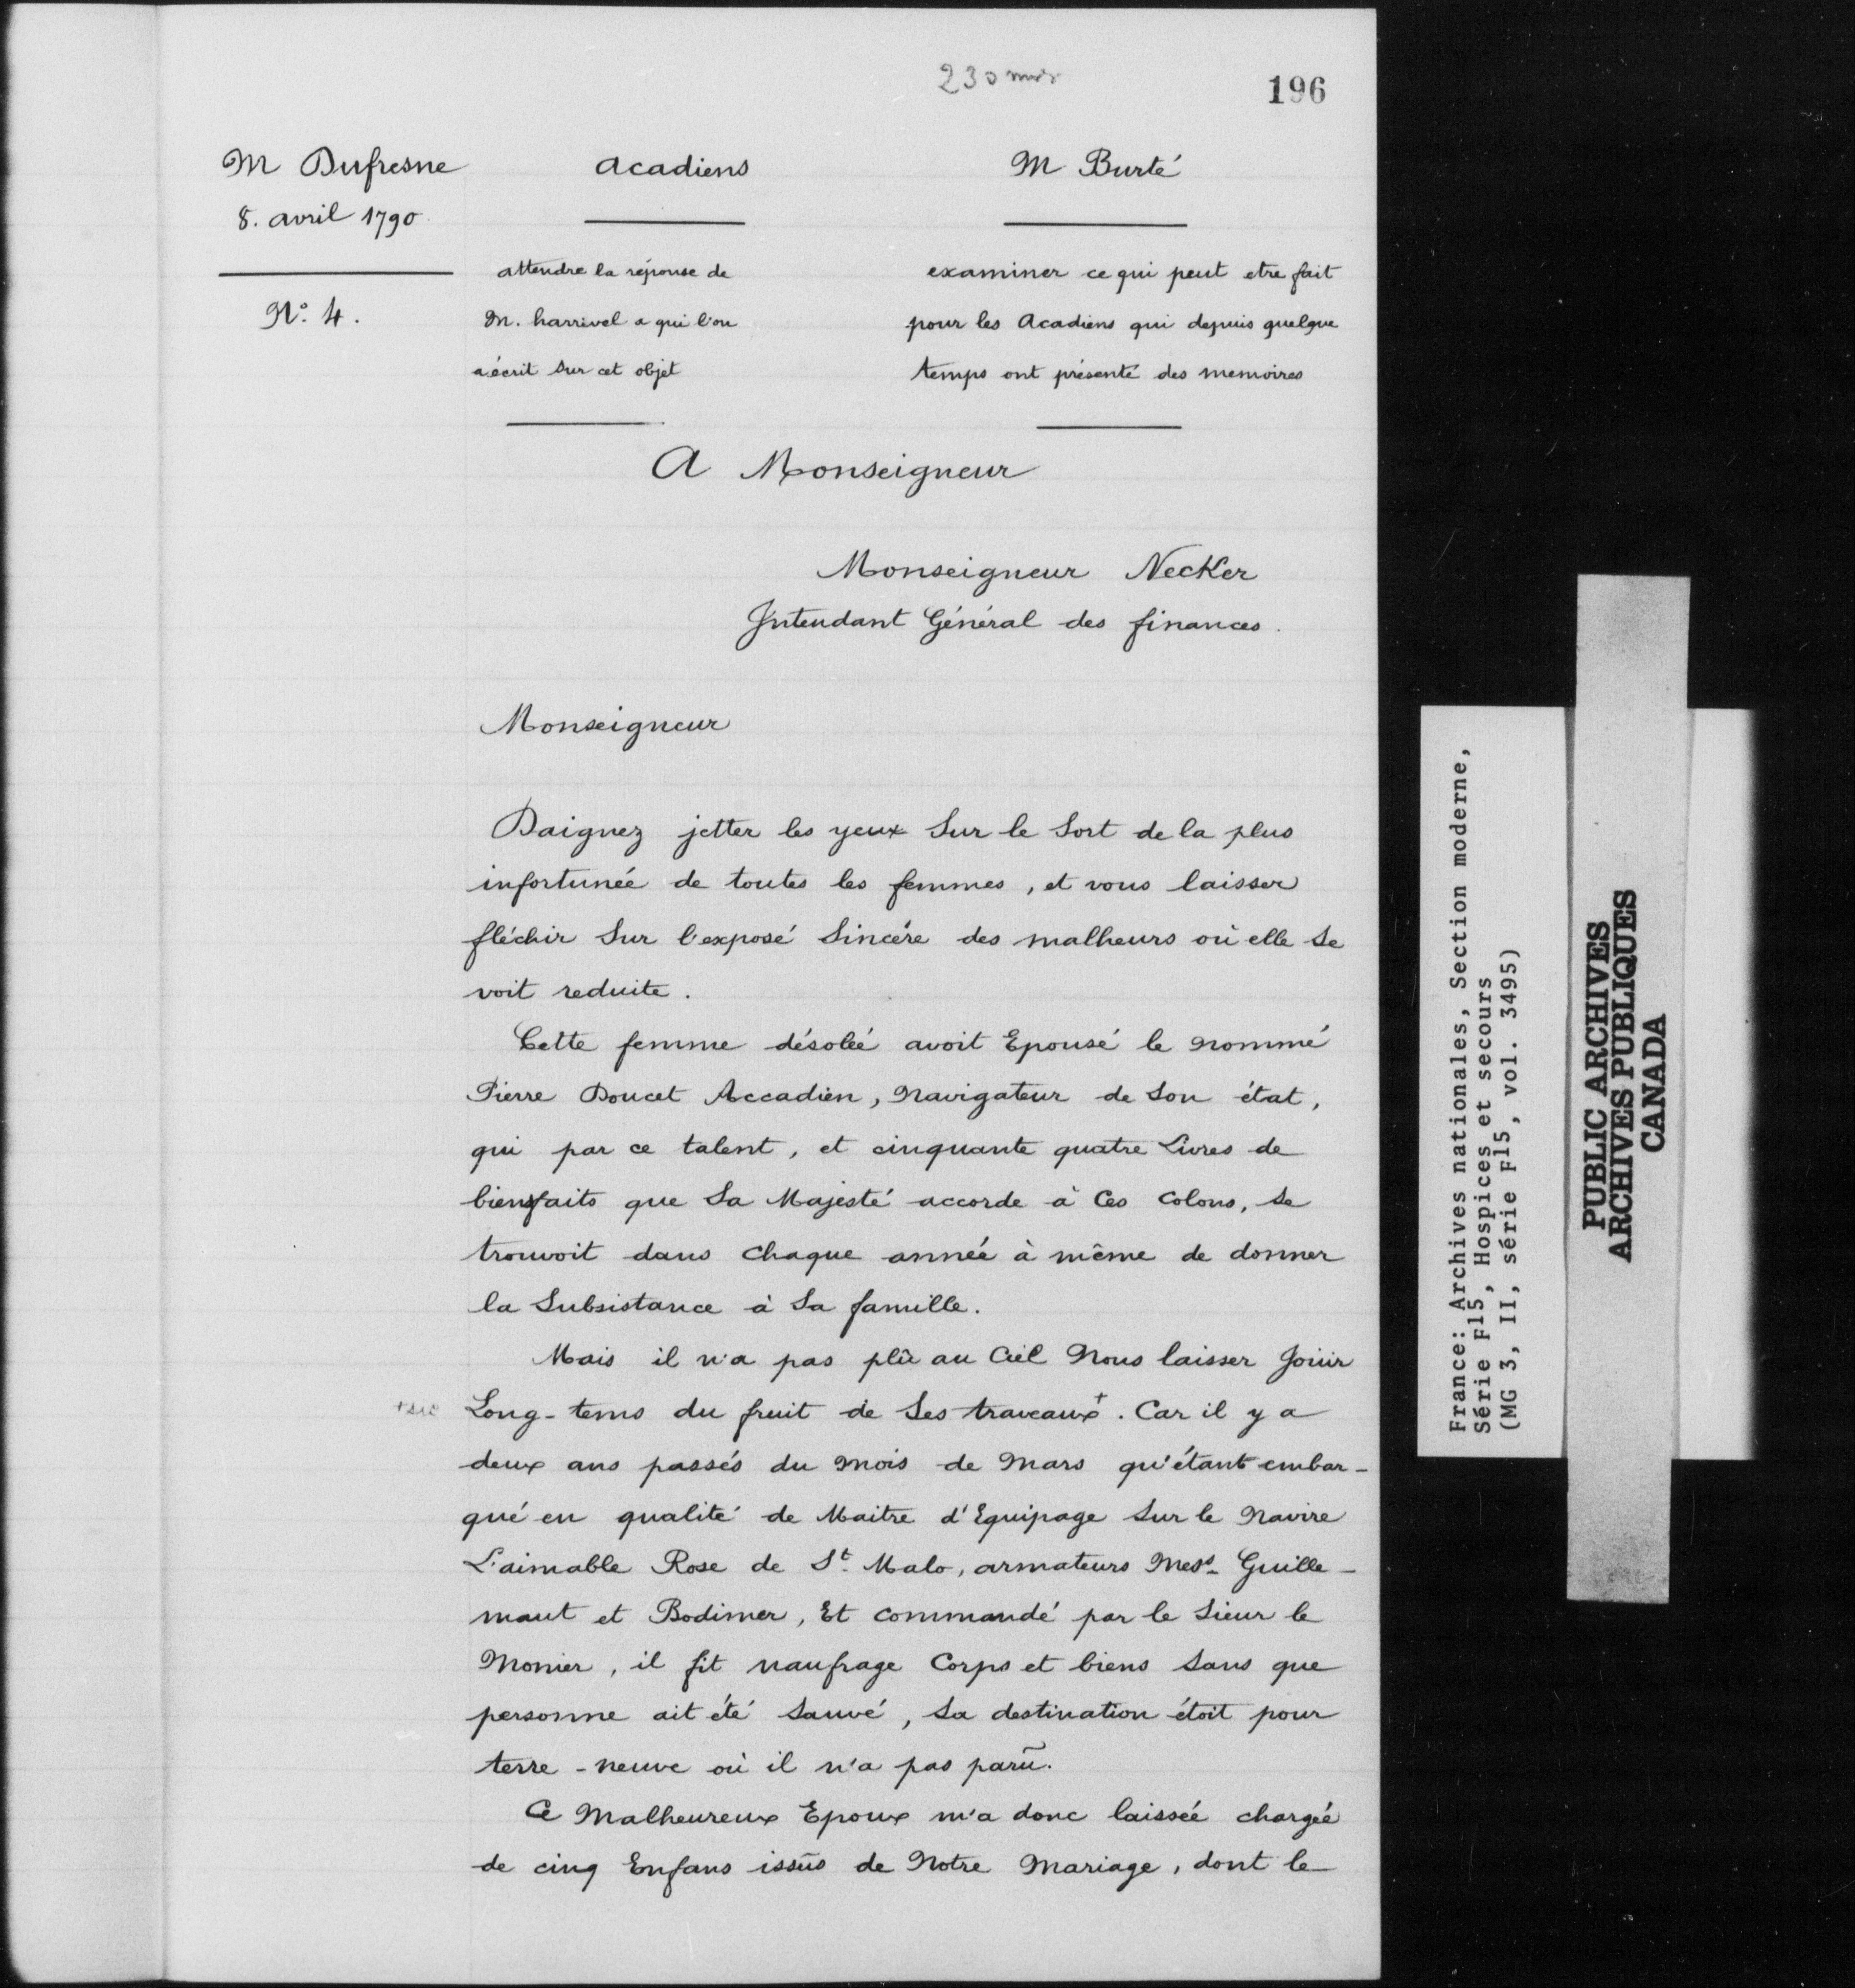 196
M Dufresne
8. avril 1790
N°. 4.
acadiens
attendre la réponse de
M. harrivel a qui l'on
a écrit sur cet objet
M Burté
examiner ce qui peut etre fait
pour les Acadiens qui depuis quelque
temps ont présenté des memoires
A Monseigneur
Monseigneur Necker
Intendant Général des finances.
Monseigneur
Daignez jetter les yeux sur le sort de la plus
infortunée de toutes les femmes, et vous laisser
fléchir sur l'exposé sincére des malheurs où elle se
voit reduite.
Cette femme désolée avoit Epousé le nommé
Pierre Doucet Accadien, Navigateur de son état,
qui par ce talent, et cinquante quatre Livres de
bienfaits que sa Majesté accorde à ces colons, se
trouvoit dans chaque année à même de donner
la subsistance à sa famille.
Mais il n'a pas plû au Ciel Nous laisser Joüir
+sic Long-tems du fruit de ses traveaux+. Car il y a
deux ans passés du mois de Mars qu'étant embar-
qué en qualité de Maitre d'Equipage sur le Navire
L'aimable Rose de St. Malo, armateurs Mess. Guille-
maut et Bodimer, Et commandé par le sieur le
Monier, il fit naufrage Corps et biens sans que
personne ait été sauvé, sa destination étoit pour
terre-neuve où il n'a pas parû.
Ce Malheureux Epoux m'a donc laissée chargée
de cinq Enfans issûs de Notre Mariage, dont le
France: Archives nationales, Section moderne,
Série F15, Hospices et secours
(MG 3, II, série F15, vol. 3495)
PUBLIC ARCHIVES
ARCHIVES PUBLIQUES
CANADA